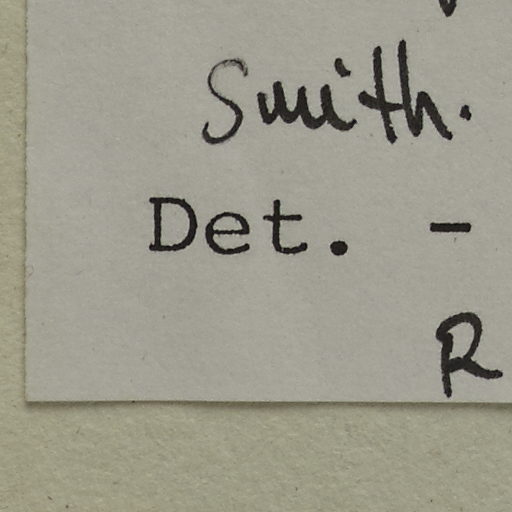 Smith.
Det. -
R